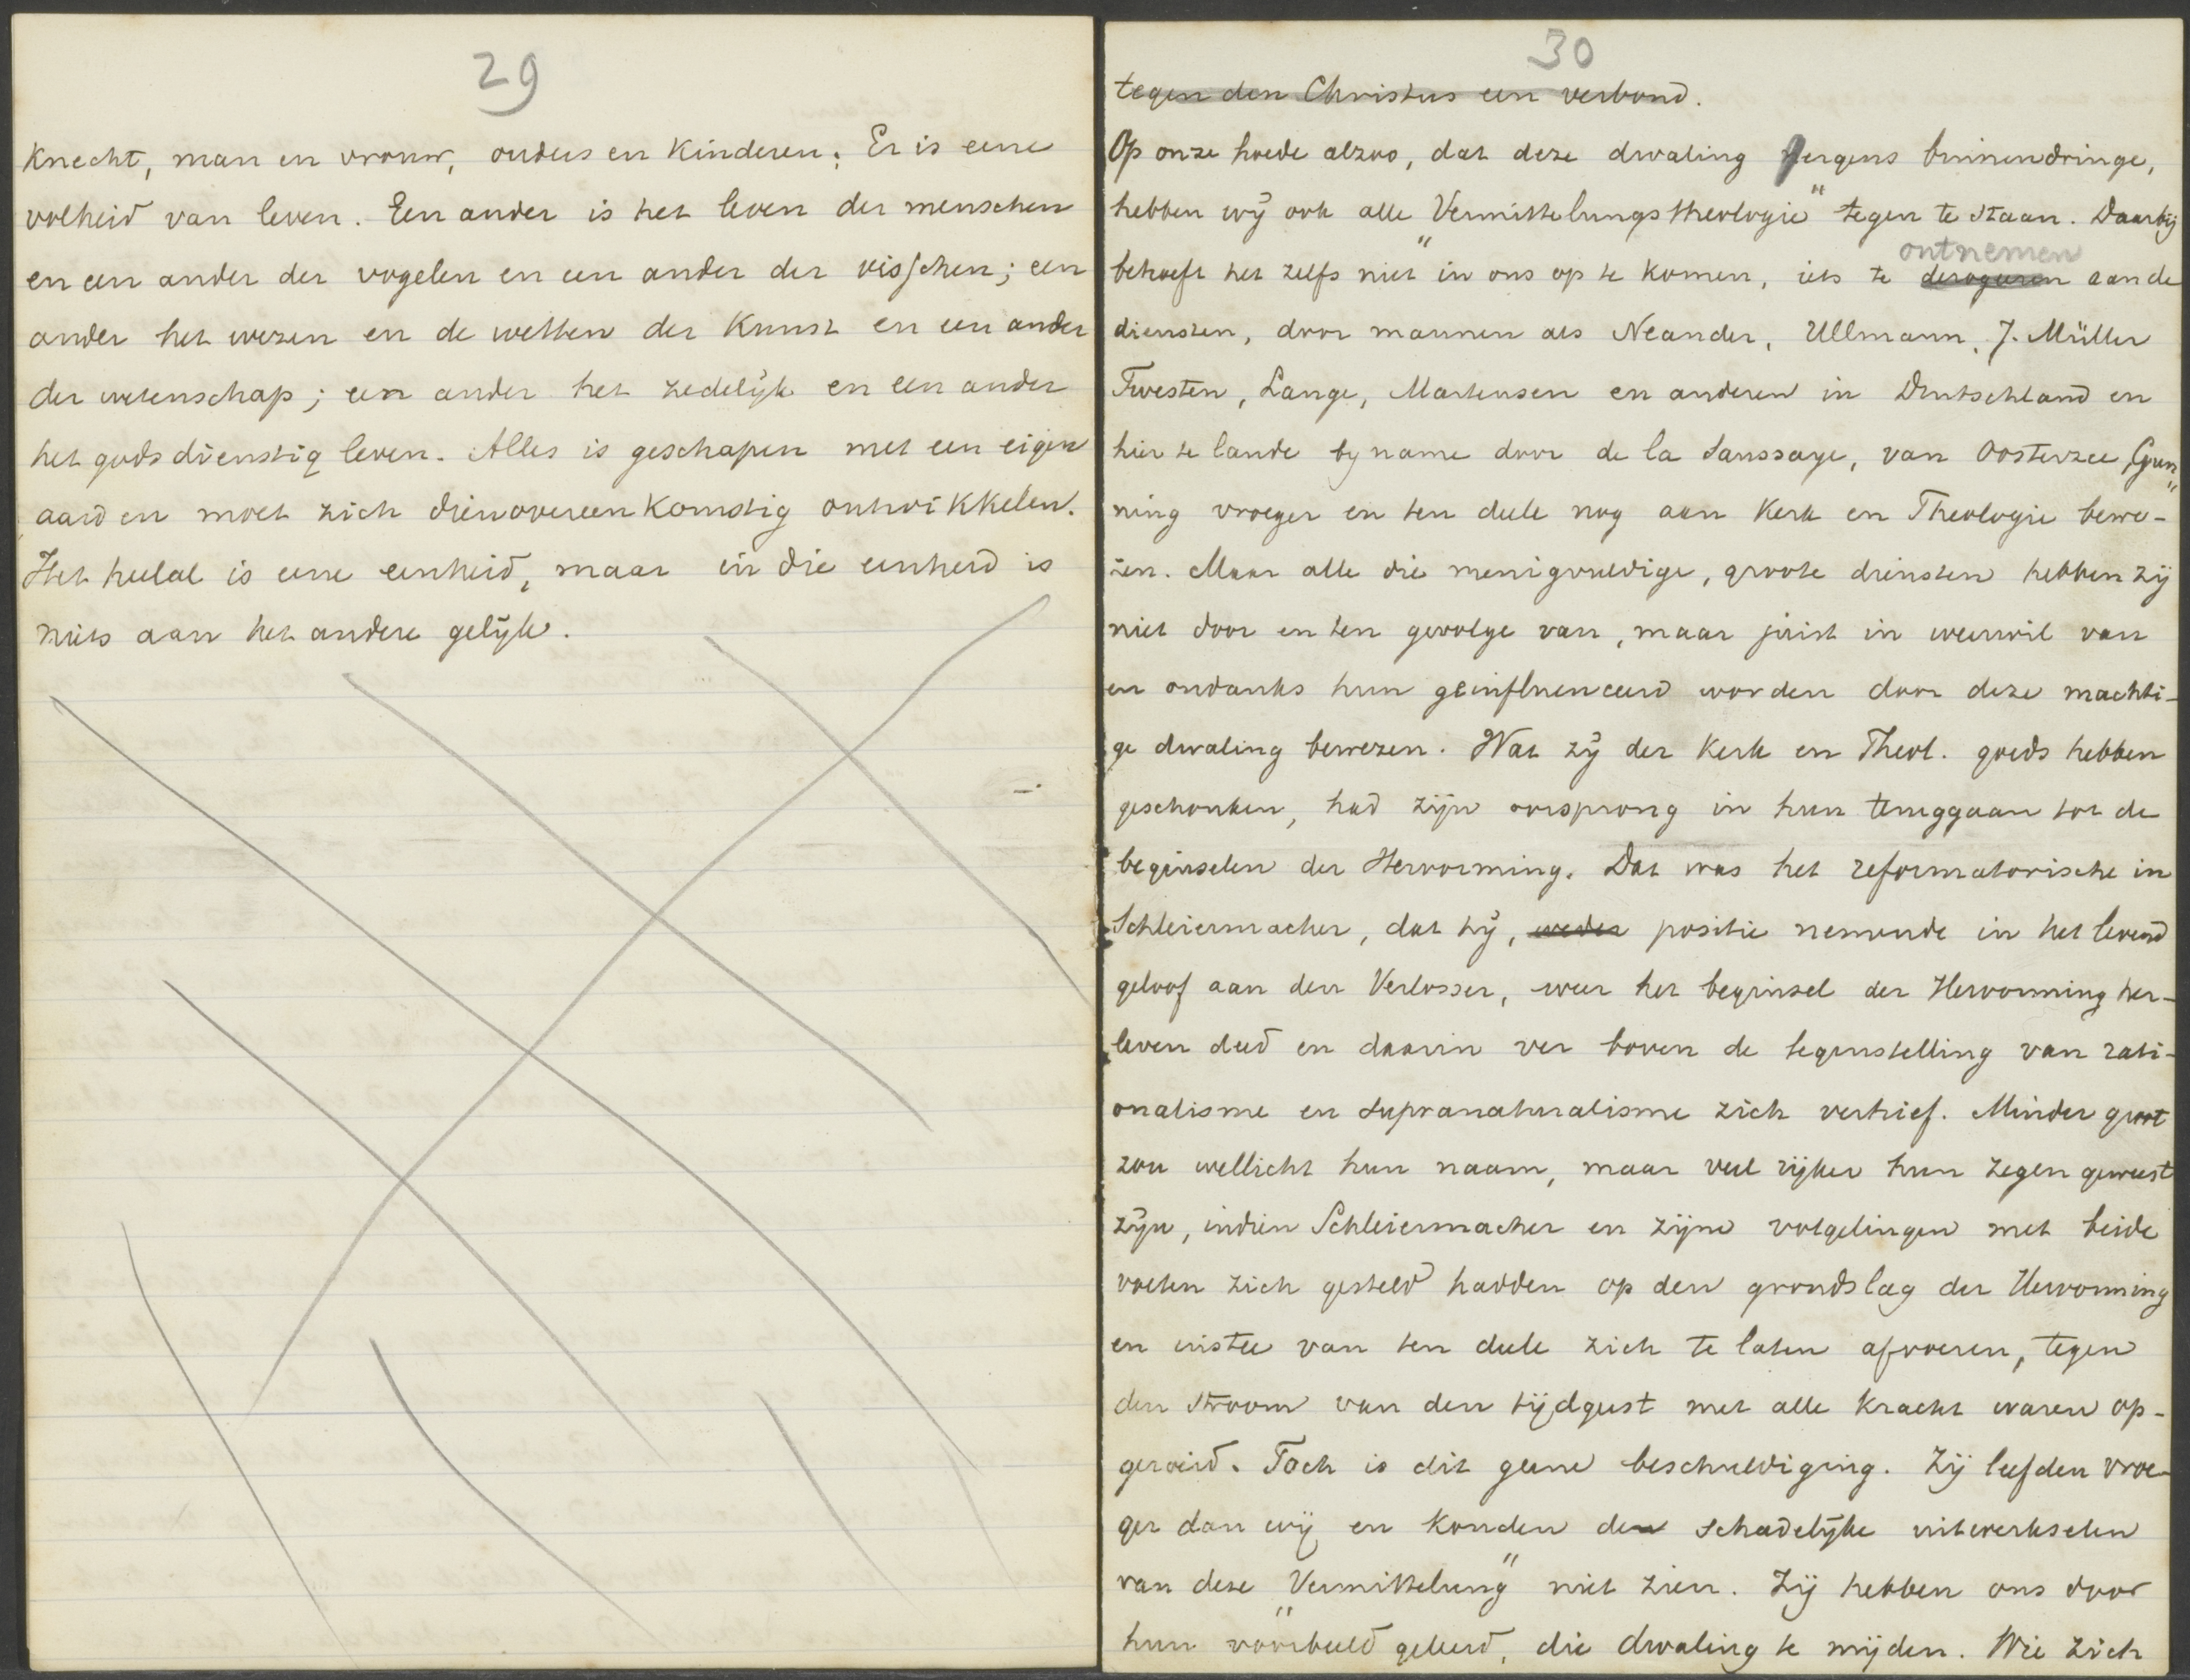 29
knecht, man en vrouw, ouders en kinderen. Er is eene
volheid van leven. Een ander is het leven der menschen
en een ander der vogelen en een ander der visschen; een
ander het wezen en de wetten der kunst en een ander
der wetenschap; een ander het zedelijk en een ander
het godsdienstig leven. Alles is geschapen met een eigen
aard en moet zich dienovereenkomstig ontwikkelen.
Het heelal is eene eenheid, maar in die eenheid is
niets aan het andere gelijk.
30
tegen den Christus een verbond.
Op onze hoede alzoo, dat deze dwaling nergens binnendringe,
hebben wij ook alle "Vermittelungstheologie" tegen te staan. Daarbij
ontnemen
behoeft het zelfs niet in ons op te komen, iets te derogeeren aan de
diensten, door mannen als Neander, Ullmann, J. Müller
Twesten, Lange, Martensen en anderen in Deutschland en
hier te lande by name door de la Saussaye, van Oosterzee, Gun-
ning vroeger en ten deele nog aan Kerk en Theologie bewe-
zen. Maar alle die menigvuldige, groote diensten hebben zij
niet door en ten gevolge van, maar juist in weerwil van
en ondanks hun geinfluenceerd worden door deze machti-
ge dwaling bewezen. Wat zij der Kerk en Theol. goeds hebben
geschonken, had zijn oorsprong in hun teruggaan tot de
beginselen der Hervorming. Dat was het reformatorische in
Schleiermacher, dat hij, weder positie nemende in het levend
geloof aan den Verlosser, weer het beginsel der Hervorming her-
leven deed en daarin ver boven de tegenstelling van rati-
onalisme en supranaturalisme zich verhief. Minder groot
zou wellicht hun naam, maar veel rijker hun zegen geweest
zijn, indien Schleiermacher en zijne volgelingen met beide
voeten zich gesteld hadden op den grondslag der Hervorming
en instee van ten deele zich te laten afvoeren, tegen
den stroom van den tijdgeest met alle kracht waren op-
geroeid. Toch is dit geene beschuldiging. Zij leefden vroe-
ger dan wij en konden de schadelijke uitwerkselen
van deze "Vermittelung" niet zien. Zij hebben ons door
hun voorbeeld geleerd, die dwaling te mijden. Wie zich